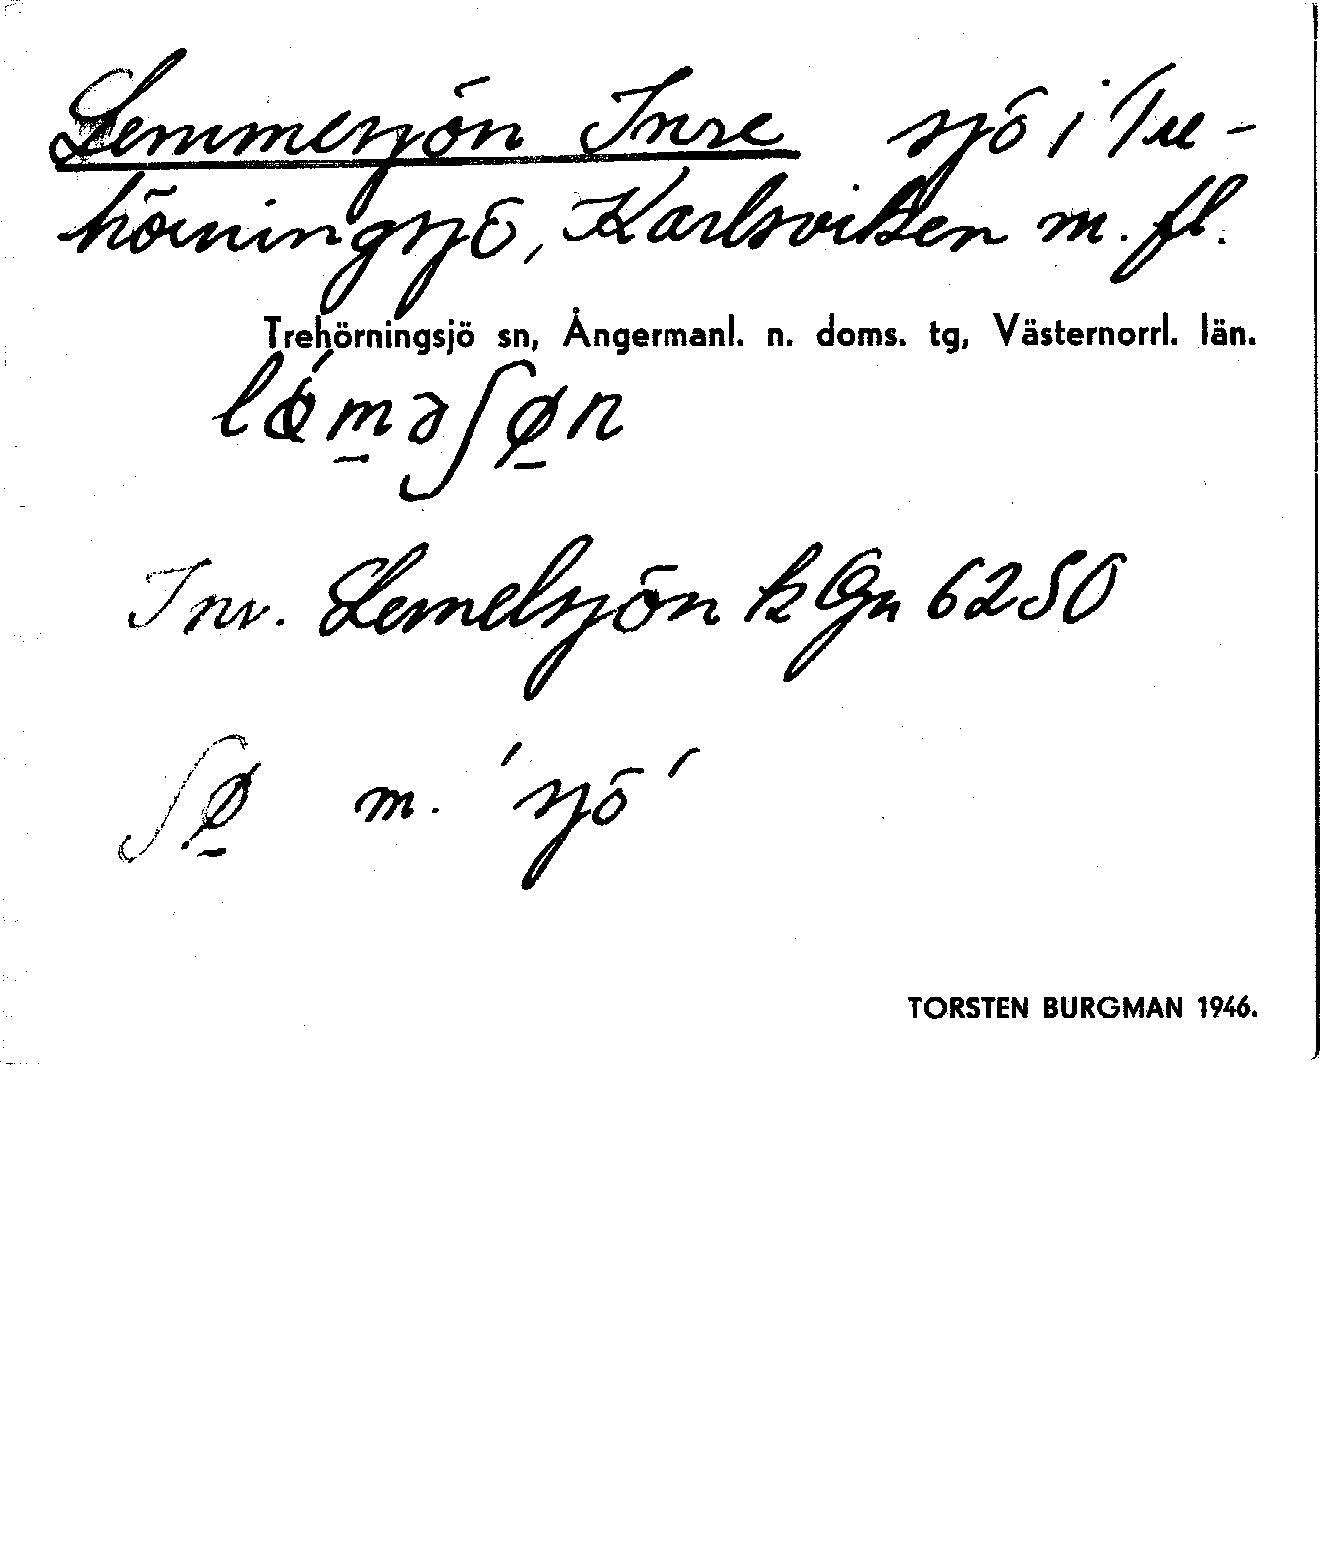 Lemmesjön Inre sjö i Tre-
hörningsjö, Karlsviken m. fl.
Trehörningsjö sn, Ångermanl. n. doms. tg, Västernorrl. län.
m̲əʃø̲n
Inr. Lemelsjön k Gn 6250
ʃø̲ m. 'sjö'
TORSTEN BURGMAN 1946.